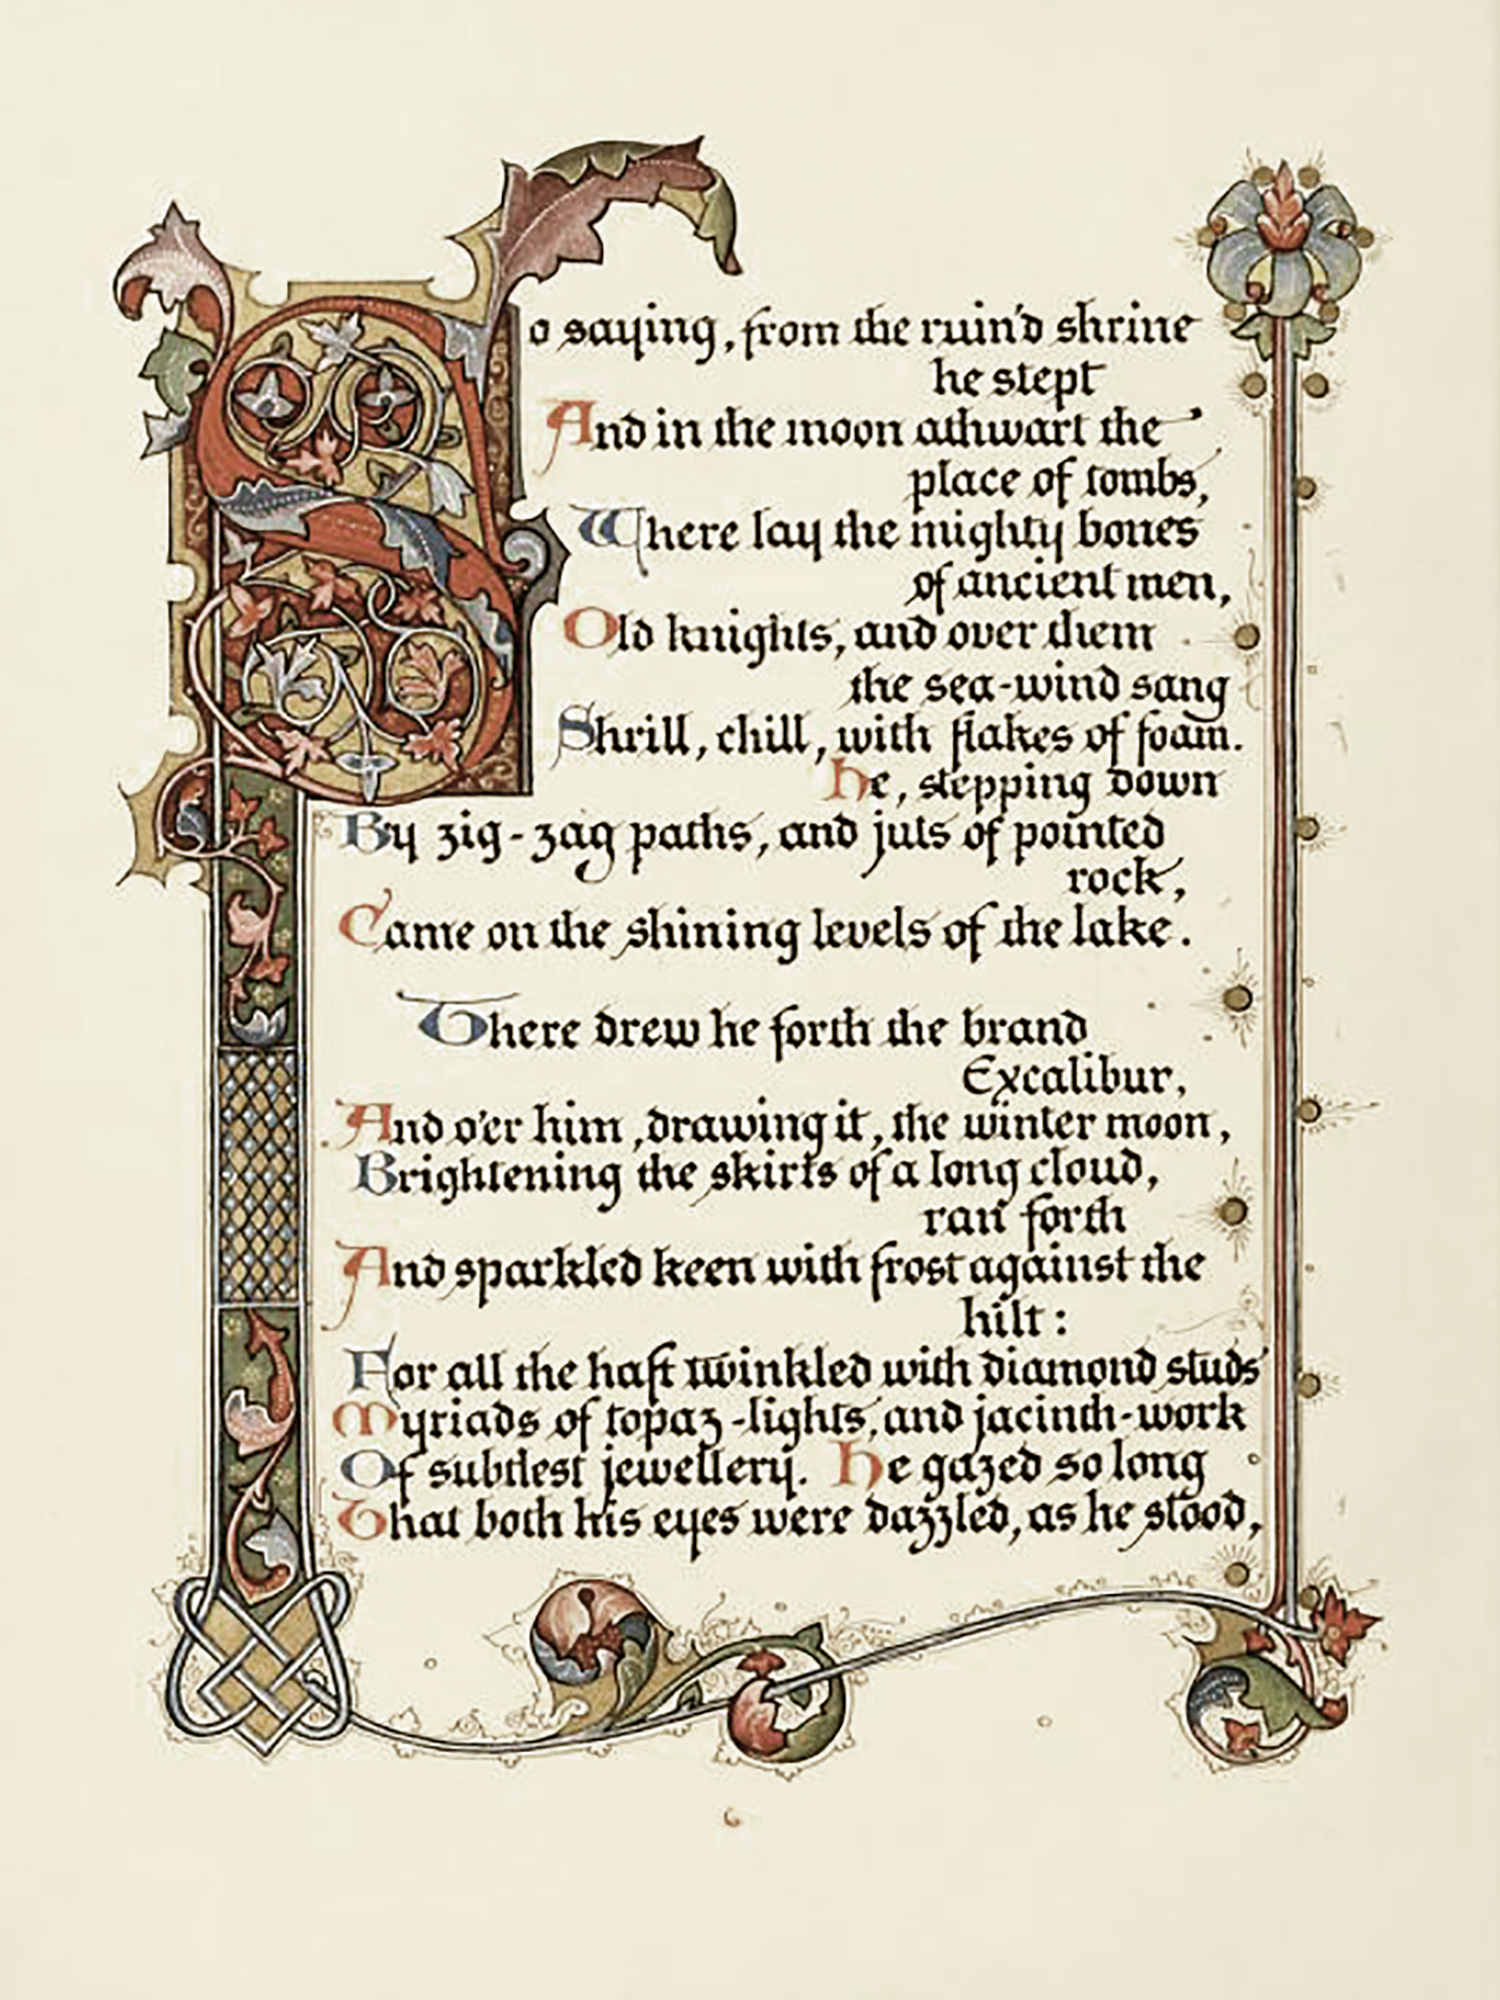 So saying, from the ruin'd shrine
he stept
And in the moon athwart the
place of tombs,
Where lay the mighty bones
of ancient men,
Old knights, and over them
the sea-wind sang
Shrill, chill, with flakes of foam.
He, stepping down
By zig-zag paths, and juts of pointed
rock,
Came on the shining levels of the lake.
There drew he forth the brand
Excalibur,
And o'er him, drawing it, the winter moon,
Brightening the skirts of a long cloud,
ran forth
And sparkled keen with frost against the
hilt:
For all the haft twinkled with diamond studs
Myriads of topaz-lights, and jacinth-work
Of subtlest jewellery. He gazed so long
That both his eyes were dazzled, as he stood,
6